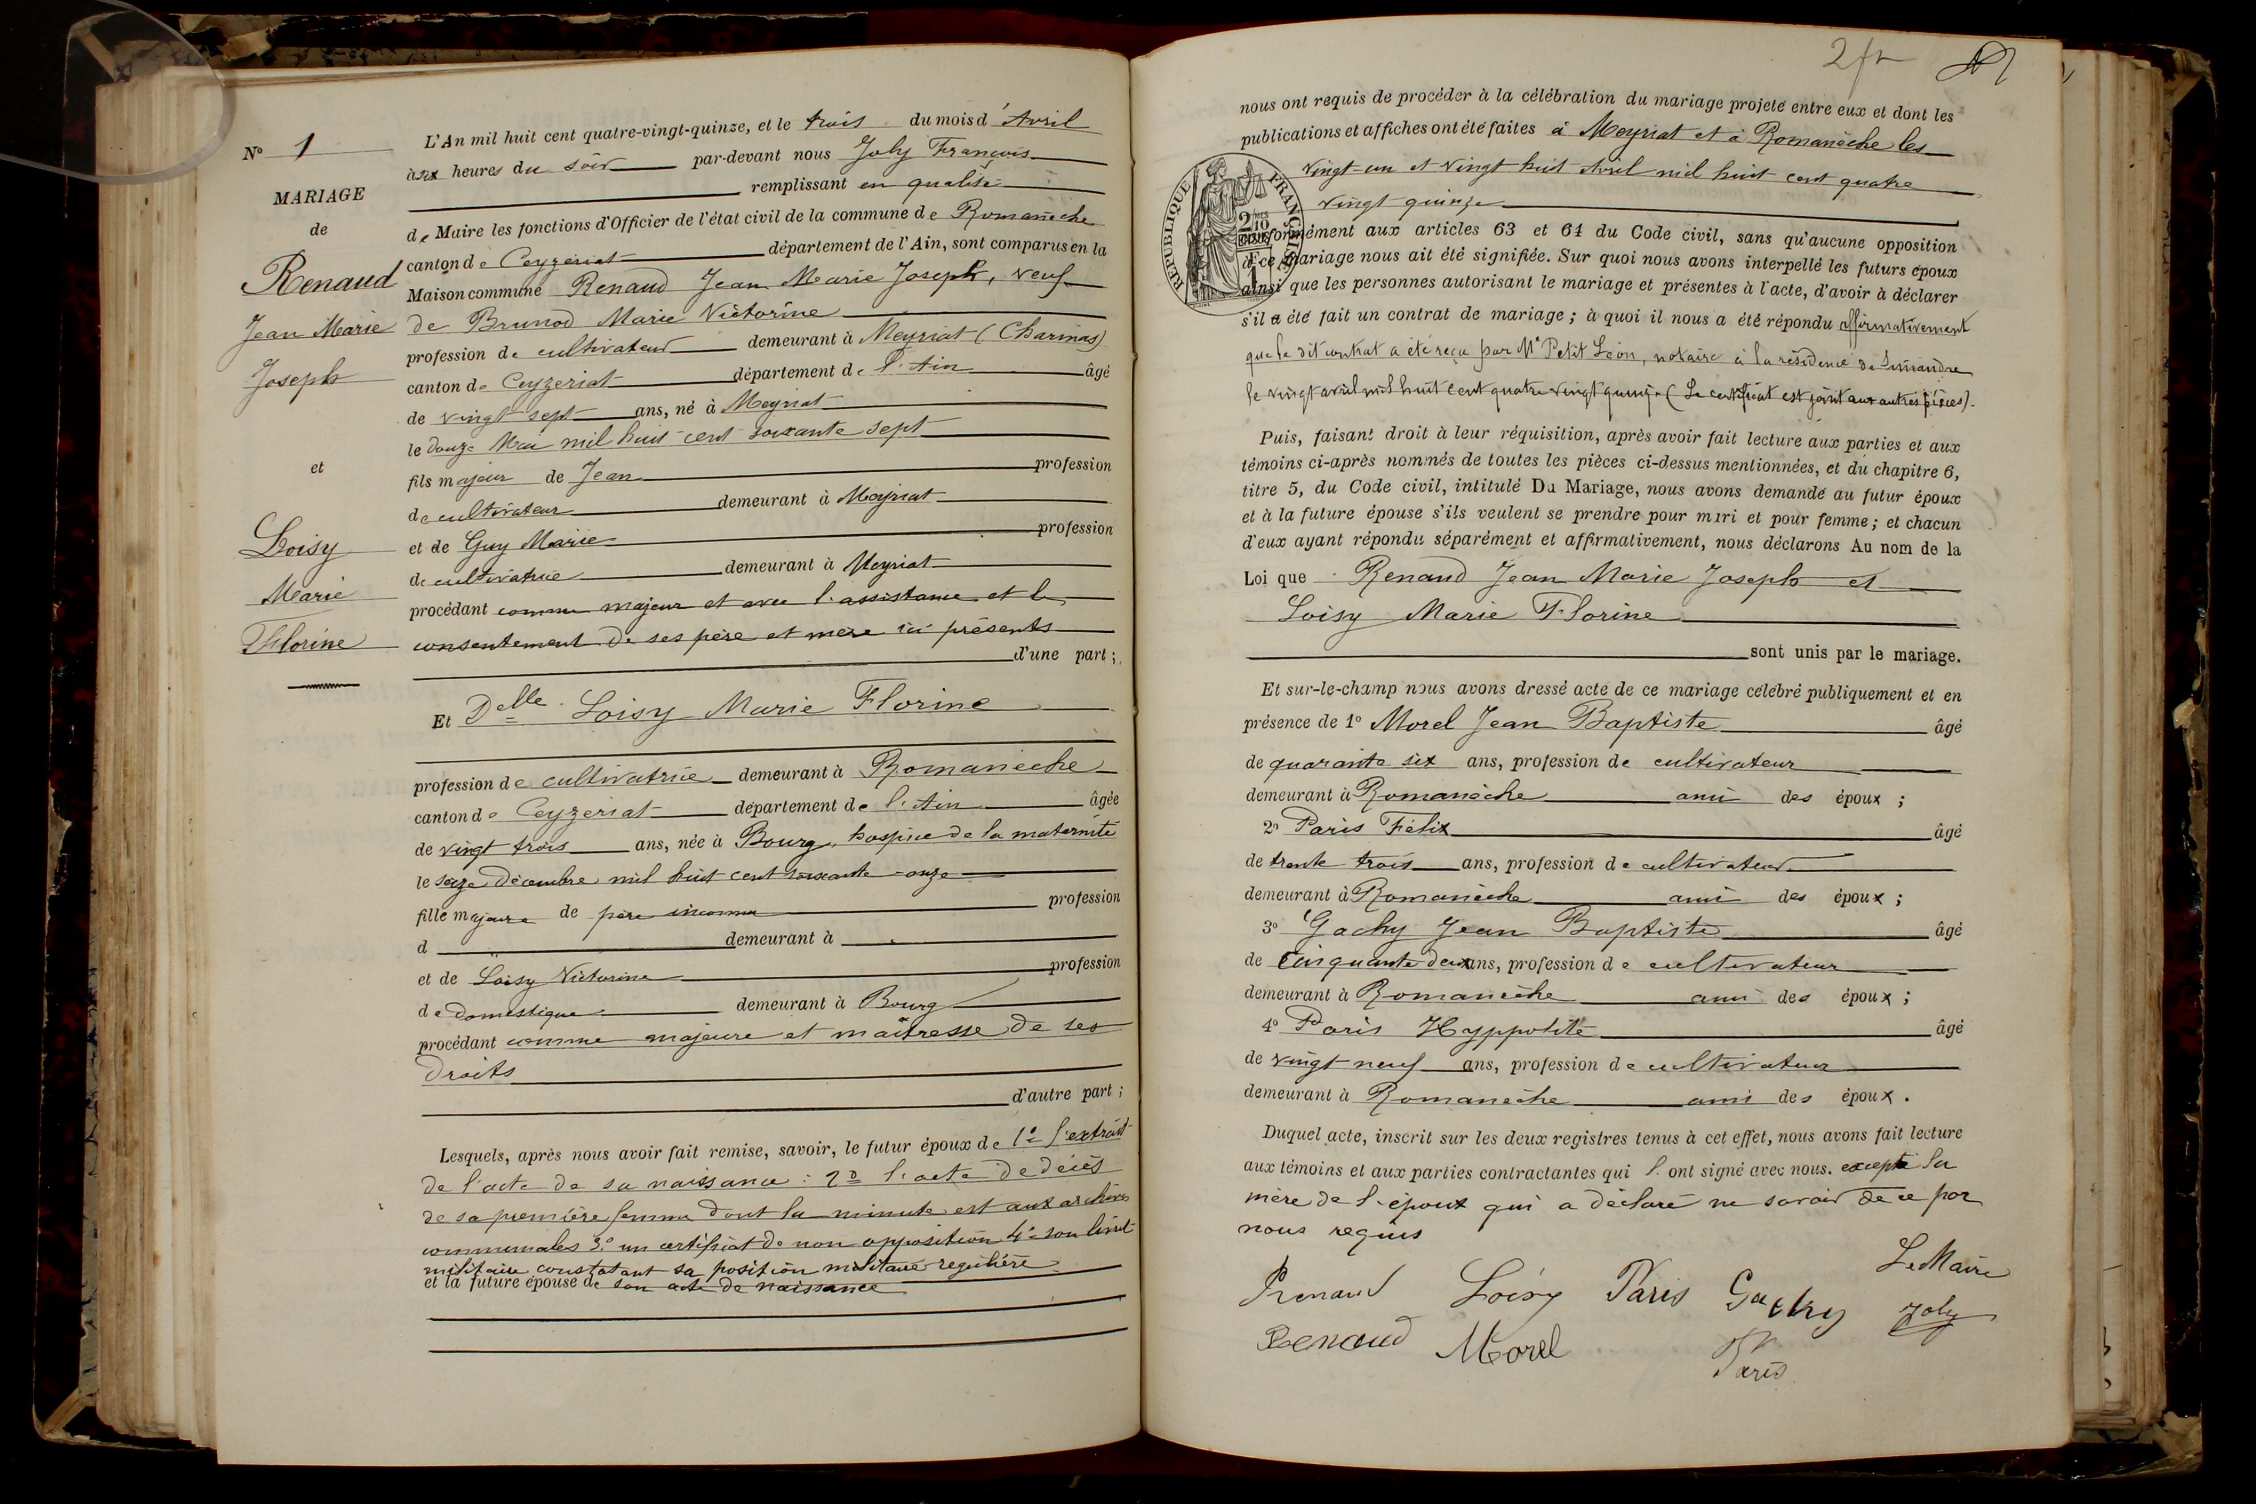 N° 1
MARIAGE
de
Renaud
Jean Marie
Joseph
et
Loisy
Marie
Florine
L'An mil huit cent quatre-vingt-quinze, et le trois du mois d'Avril
à six heures du soir par-devant nous Joly François
remplissant en qualité
de Maire les fonctions d'Officier de l'état civil de la commune de Romanèche
canton de Ceyzériat département de l'Ain, sont comparus en la
Maison commune Renaud Jean Marie Joseph, veuf
de Brunod Marie Victorine
profession de cultivateur demeurant à Meyriat (Charinas)
canton de Ceyzeriat département de l'Ain âgé
de vingt sept ans, né à Meyriat
le douze Mai mil huit cent soixante sept
fils majeur de Jean profession
de cultivateur demeurant à Meyriat
et de Guy Marie profession
de cultivatrice demeurant à Meyriat
procédant comme majeur et avec l'assistance et le
consentement de ses père et mère ici présents
d'une part ;
Et Delle Loisy Marie Florine
profession de cultivatrice demeurant à Romanèche
canton de Ceyzeriat département de l'Ain âgée
de vingt trois ans, née à Bourg, hospice de la maternité
le seize Décembre mil huit cent soixante-onze
fille majeure de père inconnu profession
d demeurant à
et de Loisy Victorine profession
de domestique demeurant à Bourg
procédant comme majeure et maîtresse de ses
droits
d'autre part ;
Lesquels, après nous avoir fait remise, savoir, le futur époux de 1° l'extrait
de l'acte de sa naissance : 2° l'acte de décès
de sa première femme dont la minute est aux archives
communales 3° un certificat de non opposition 4° son livret
militaire constatant sa position militaire régulière
et la future épouse de son acte de naissance
2
nous ont requis de procéder à la célébration du mariage projeté entre eux et dont les
publications et affiches ont été faites à Meyriat et à Romanèche les
vingt-un et vingt huit Avril mil huit cent quatre
vingt quinze
RÉPUBLIQUE FRANÇAISE
2/10
conformément aux articles 63 et 64 du Code civil, sans qu'aucune opposition
à ce mariage nous ait été signifiée. Sur quoi nous avons interpellé les futurs époux
ainsi que les personnes autorisant le mariage et présentes à l'acte, d'avoir à déclarer
s'il a été fait un contrat de mariage ; à quoi il nous a été répondu affirmativement
que le dit contrat a été reçu par Me Petit Léon, notaire à la résidence de Simandre
le vingt avril mil huit cent quatre vingt quinze (Le certificat est joint aux autres pièces).
Puis, faisant droit à leur réquisition, après avoir fait lecture aux parties et aux
témoins ci-après nommés de toutes les pièces ci-dessus mentionnées, et du chapitre 6,
titre 5, du Code civil, intitulé Du Mariage, nous avons demandé au futur époux
et à la future épouse s'ils veulent se prendre pour mari et pour femme ; et chacun
d'eux ayant répondu séparément et affirmativement, nous déclarons Au nom de la
Loi que Renaud Jean Marie Joseph et
Loisy Marie Florine
sont unis par le mariage.
Et sur-le-champ nous avons dressé acte de ce mariage célébré publiquement et en
présence de 1° Morel Jean Baptiste âgé
de quarante six ans, profession de cultivateur
demeurant à Romanèche ami des époux ;
2° Paris Félix âgé
de trente trois ans, profession de cultivateur
demeurant à Romanèche ami des époux ;
3° Gachy Jean Baptiste âgé
de cinquante deux ans, profession de cultivateur
demeurant à Romanèche ami des époux ;
4° Paris Hyppolite âgé
de vingt neuf ans, profession de cultivateur
demeurant à Romanèche ami des époux.
Duquel acte, inscrit sur les deux registres tenus à cet effet, nous avons fait lecture
aux témoins et aux parties contractantes qui l'ont signé avec nous. excepté la
mère de l'époux qui a déclaré ne savoir de ce par
nous requis
Le Maire
Renaud Loisy Paris Gachy Joly
Renaud Morel Paris